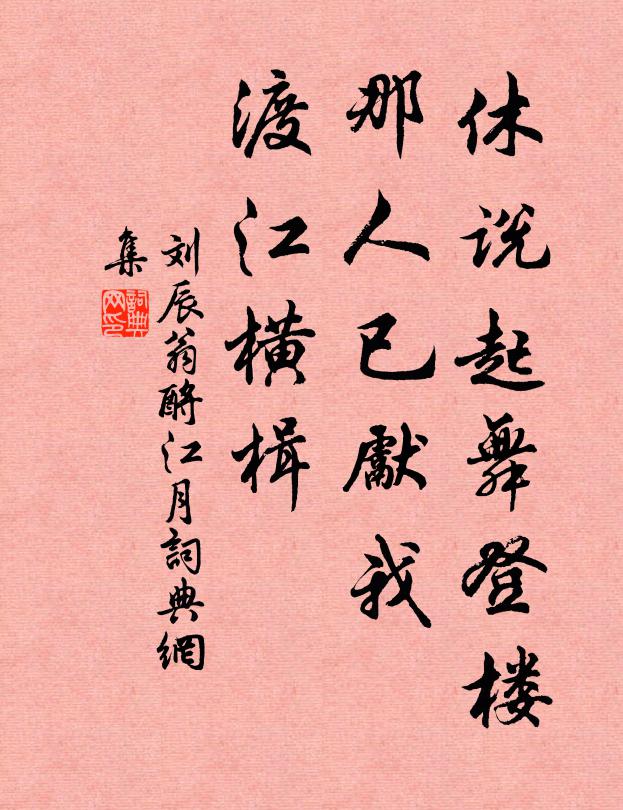 休说起舞登楼
那人已獻我
渡江横楫
刘辰翁酹江月詞典網
集
詞典
网印